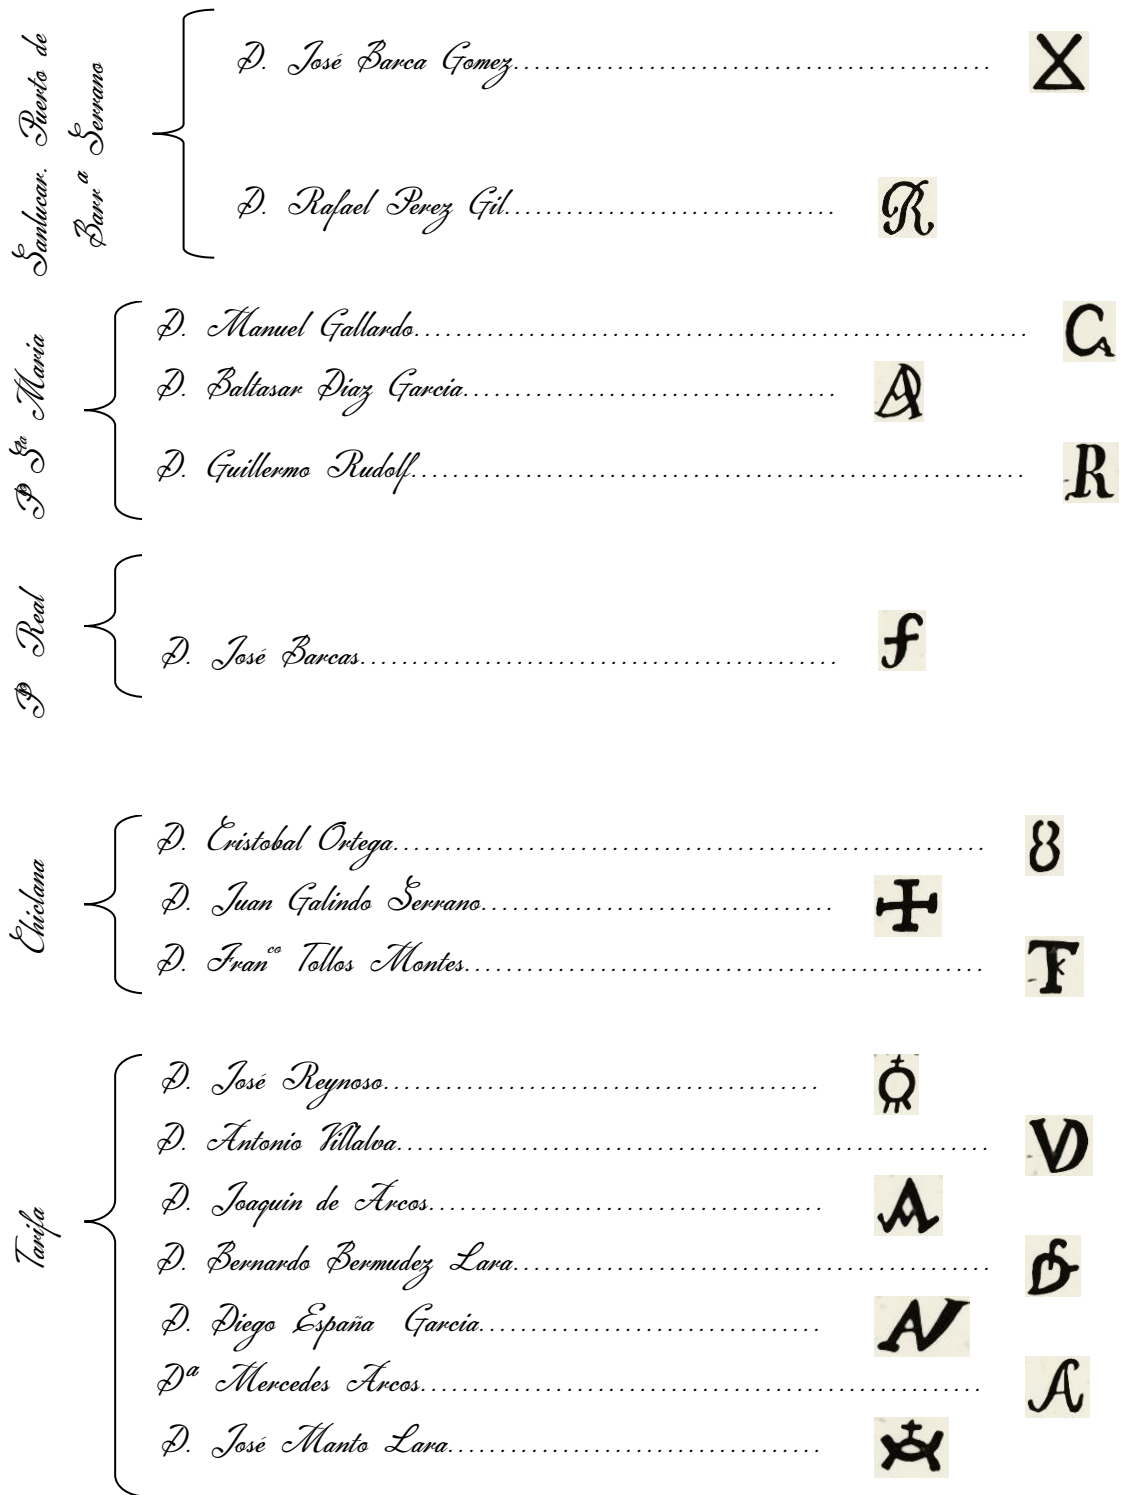 Sanlucar. Puerto de
Barrª Serrano
D. José Barca Gomez
D. Rafael Perez Gil
P Sta Maria
D. Manuel Gallardo
D. Baltasar Diaz Garcia
D. Guillermo Rudolf
P Real
D. José Barcas
Chiclana
D. Cristobal Ortega
D. Juan Galindo Serrano
D. Franco Tollos Montes
Tarifa
D. José Reynoso
D. Antonio Villalva
D. Joaquin de Arcos
D. Bernardo Bermudez Lara
D. Diego España Garcia
Dª Mercedes Arcos
D. José Manto Lara